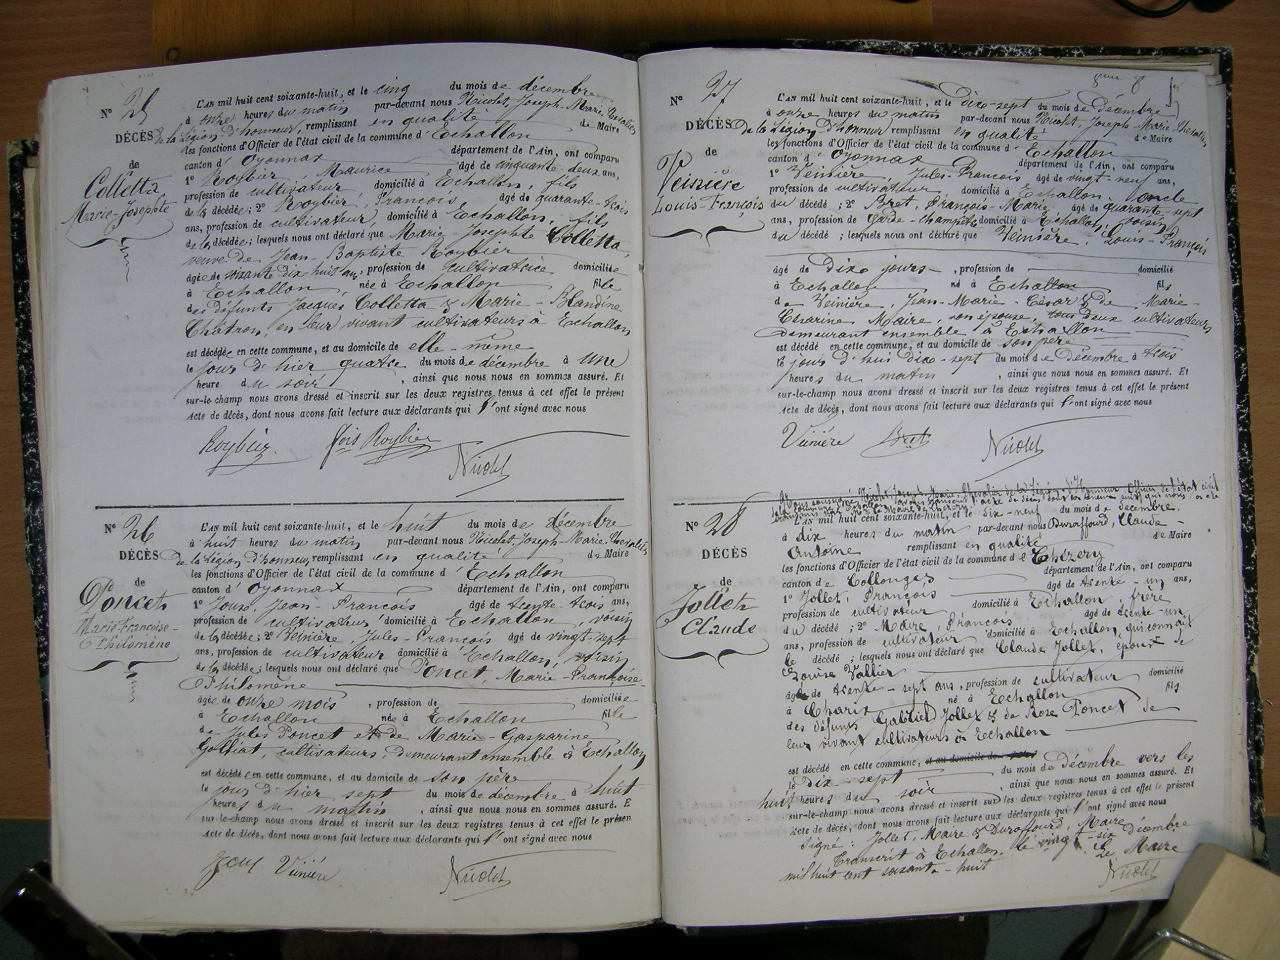 N° 25
DÉCÈS
de
Colletta
Marie-Josephte
L'AN mil huit cent soixante-huit, et le cinq du mois de décembre
à onze heures du matin par-devant nous Nicolet, Joseph-Marie, Chevalier
de la légion d'honneur, remplissant en qualité de Maire
les fonctions d'Officier de l'état civil de la commune d'Echallon
canton d'Oyonnax département de l'Ain, ont comparu
1° Roybier, Maurice âgé de cinquante deux ans,
profession de cultivateur domicilié à Echallon, fils
de la décédée; 2° Roybier, François âgé de quarante-trois
ans, profession de cultivateur domicilié à Echallon, fils
de la décédée; lesquels nous ont déclaré que Marie Josephte Colletta,
veuve de Jean-Baptiste Roybier
âgée de soixante dix huit ans, profession de cultivatrice domiciliée
à Echallon, née à Echallon fille
des défunts Jacques Colletta & Marie-Blandine
Chatron, en leur vivant cultivateurs à Echallon
est décédée en cette commune, et au domicile de elle-même
le jour d'hier quatre du mois de décembre à une
heure du soir, ainsi que nous nous en sommes assuré. Et
sur-le-champ nous avons dressé et inscrit sur les deux registres tenus à cet effet le présent
acte de décès, dont nous avons fait lecture aux déclarants qui l'ont signé avec nous
Roybier fois Roybier
Nicolet
N° 26
DÉCÈS
de
Poncet
Marie Françoise
Philomène
L'AN mil huit cent soixante-huit, et le huit du mois de décembre
à huit heures du matin par-devant nous Nicolet, Joseph-Marie, Chevalier
de la légion d'honneur, remplissant en qualité de Maire
les fonctions d'Officier de l'état civil de la commune d'Echallon
canton d'Oyonnax département de l'Ain, ont comparu
1° Jean-François âgé de trente trois ans,
profession de cultivateur domicilié à Echallon voisin
de la décédée; 2° Veinière, Jules-François âgé de vingt-sept
ans, profession de cultivateur domicilié à Echallon, voisin
de la décédée; lesquels nous ont déclaré que Poncet, Marie-Françoise
Philomène
âgée de onze mois, profession de domiciliée
à Echallon née à Echallon fille
de Jules Poncet et de Marie-Gasparine
Golliat, cultivateurs, demeurant ensemble à Echallon,
est décédée en cette commune, et au domicile de son père
le jour d'hier sept du mois de décembre à huit
heures du matin, ainsi que nous nous en sommes assuré. E
sur-le-champ nous avons dressé et inscrit sur les deux registres tenus à cet effet le présen
acte de décès, dont nous avons fait lecture aux déclarants qui l'ont signé avec nous
Veinière Nicolet
N° 27
DÉCÈS
de
Veinière
Louis-François
L'AN mil huit cent soixante-huit, et le dix-sept du mois de décembre
à onze heures du matin par-devant nous Nicolet-Joseph-Marie Chevalier
de la légion d'honneur remplissant en qualité de Maire
les fonctions d'Officier de l'état civil de la commune d'Echallon
canton d'Oyonnax département de l'Ain, ont comparu
1° Veinière, Jules-François âgé de vingt-neuf ans,
profession de cultivateur domicilié à Echallon, oncle
du décédé; 2° Bret, François-Marie âgé de quarante-sept
ans, profession de garde-champêtre domicilié à Echallon, voisin
du décédé; lesquels nous ont déclaré que Veinière, Louis-François
âgé de dix jours, profession de domicilié
à Echallon né à Echallon fils
de Veinière Jean-Marie-César & de Marie-
Césarine Maire, son épouse, tous deux cultivateurs
demeurant ensemble à Echallon
est décédé en cette commune, et au domicile de son père
le jour d'hui dix-sept du mois de décembre à trois
heures du matin, ainsi que nous nous en sommes assuré. Et
sur-le-champ nous avons dressé et inscrit sur les deux registres tenus à cet effet le présent
acte de décès, dont nous avons fait lecture aux déclarants qui l'ont signé avec nous
Veinière Bret Nicolet
N° 28
DÉCÈS
de
Jollet
Claude
L'AN mil huit cent soixante-huit, et le dix-neuf du mois de décembre
à dix heures du matin par-devant nous Duraffourd, Claude-
Antoine remplissant en qualité de Maire
les fonctions d'Officier de l'état civil de la commune d Chézery
canton de Collonges département de l'Ain, ont comparu
1° Jollet, François âgé de trente-un ans,
profession de cultivateur domicilié à Echallon, frère
du décédé; 2° Maire, François âgé de trente-un
ans, profession de cultivateur domicilié à Echallon, qui connait
le décédé; lesquels nous ont déclaré que Claude Jollet, époux de
Louise Vallier
âgé de trente-sept ans, profession de cultivateur domicilié
à Charix né à Echallon fils
des défunts Gabriel Jollet & de Rose Poncet de
leur vivant cultivateurs à Echallon
est décédé en cette commune,
le dix-sept du mois de décembre vers les
huit heures du soir, ainsi que nous nous en sommes assuré. Et
sur-le-champ nous avons dressé et inscrit sur les deux registres tenus à cet effet le présent
acte de décès, dont nous avons fait lecture aux déclarants qui l'ont signé avec nous
Signé: Jollet, Maire & Duraffourd, Maire
Transcrit à Echallon le vingt-six décembre
mil huit cent soixante-huit Le Maire
Nicolet